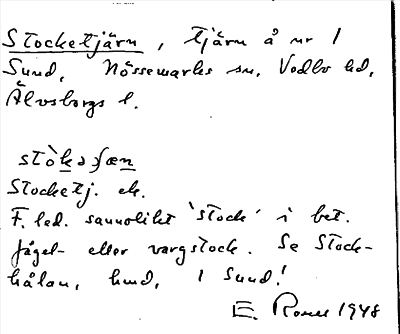 Stocketjärn, tjärn å nr 1
Sund, Nössemarks sn, Vedbo hd,
Älvsborgs l.
stòkəʃæn
Stocketj. ek.
F. led. sannolikt 'stock' i bet.
fågel- eller vargstock. Se Stock-
hålan, hmd, 1 Sund!
E. Rosell 1948